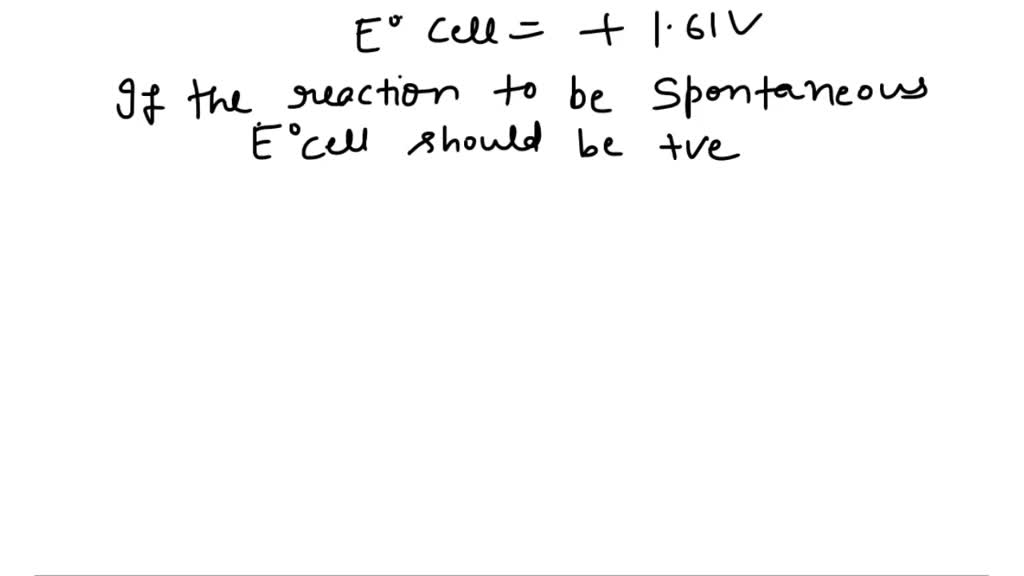 E° Cell = + 1.61V
If the reaction to be Spontaneous
E° cell should be +ve